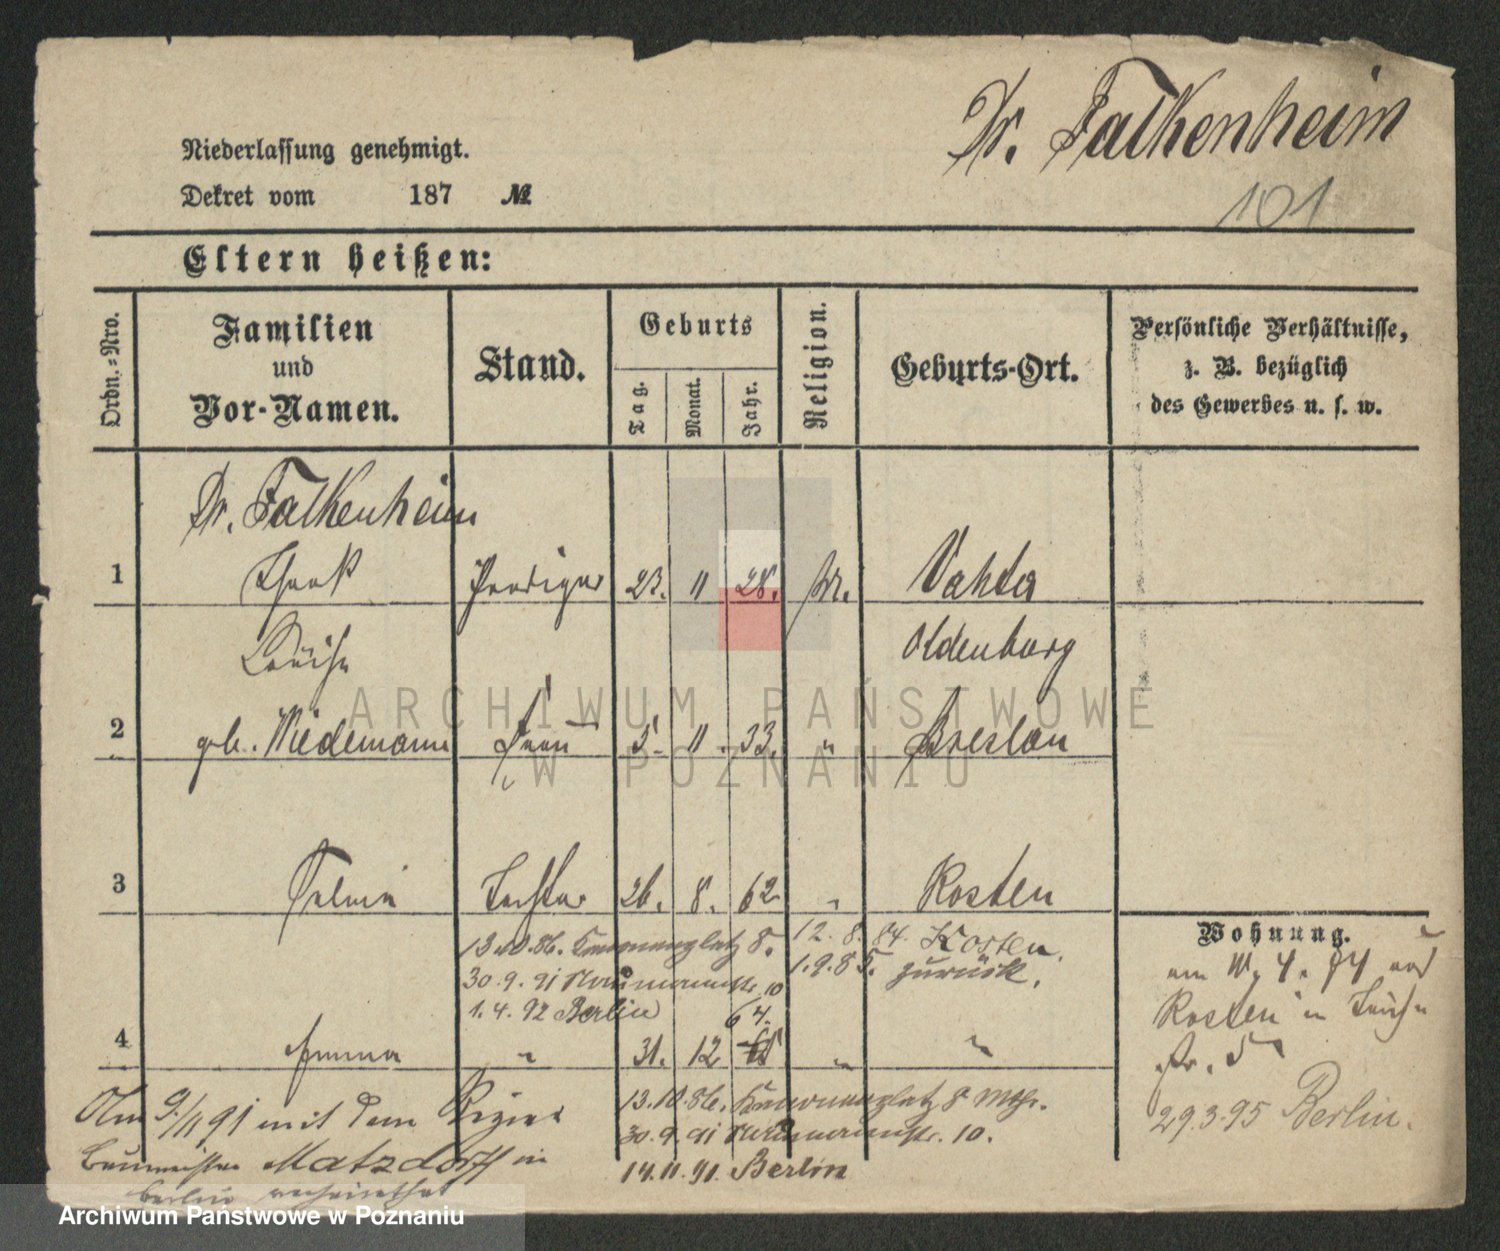 Dr. Falkenheim
101
Niederlassung genehmigt.
Dekret vom 187 №
Eltern heißen:
Ordn.-Nro.
Familien
und
Vor-Namen.
Stand.
Geburts
Tag.
Monat.
Jahr.
Religion.
Geburts-Ort.
Persönliche Verhältnisse,
z. B. bezüglich
des Gewerbes u. s. w.
Dr. Falkenheim
1 Prediger 23. 11 28.
Louise Oldenburg
2 geb. Wiedemann Frau 5. 11. 33. " Breslau
3 Tochter 26. 8. 62 " Kosten
13.10.86. Kanonenplatz 8. 12. 8. 84. Kosten.
30.9.91 Naumannstr. 10 1.9.85. zurück.
1.4.92 Berlin 64.
4 Emma " 31. 12 " "
Am 9/11 91 mit dem
Baumeister Matzdorff in
Berlin verheirathet
13.10.86. Kanonenplatz 8
30.9.91 Naumannstr. 10.
14.11.91. Berlin
Wohnung.
Kosten
29.3.95 Berlin.
ARCHIWUM PAŃSTWOWE
W POZNANIU
Archiwum Państwowe w Poznaniu